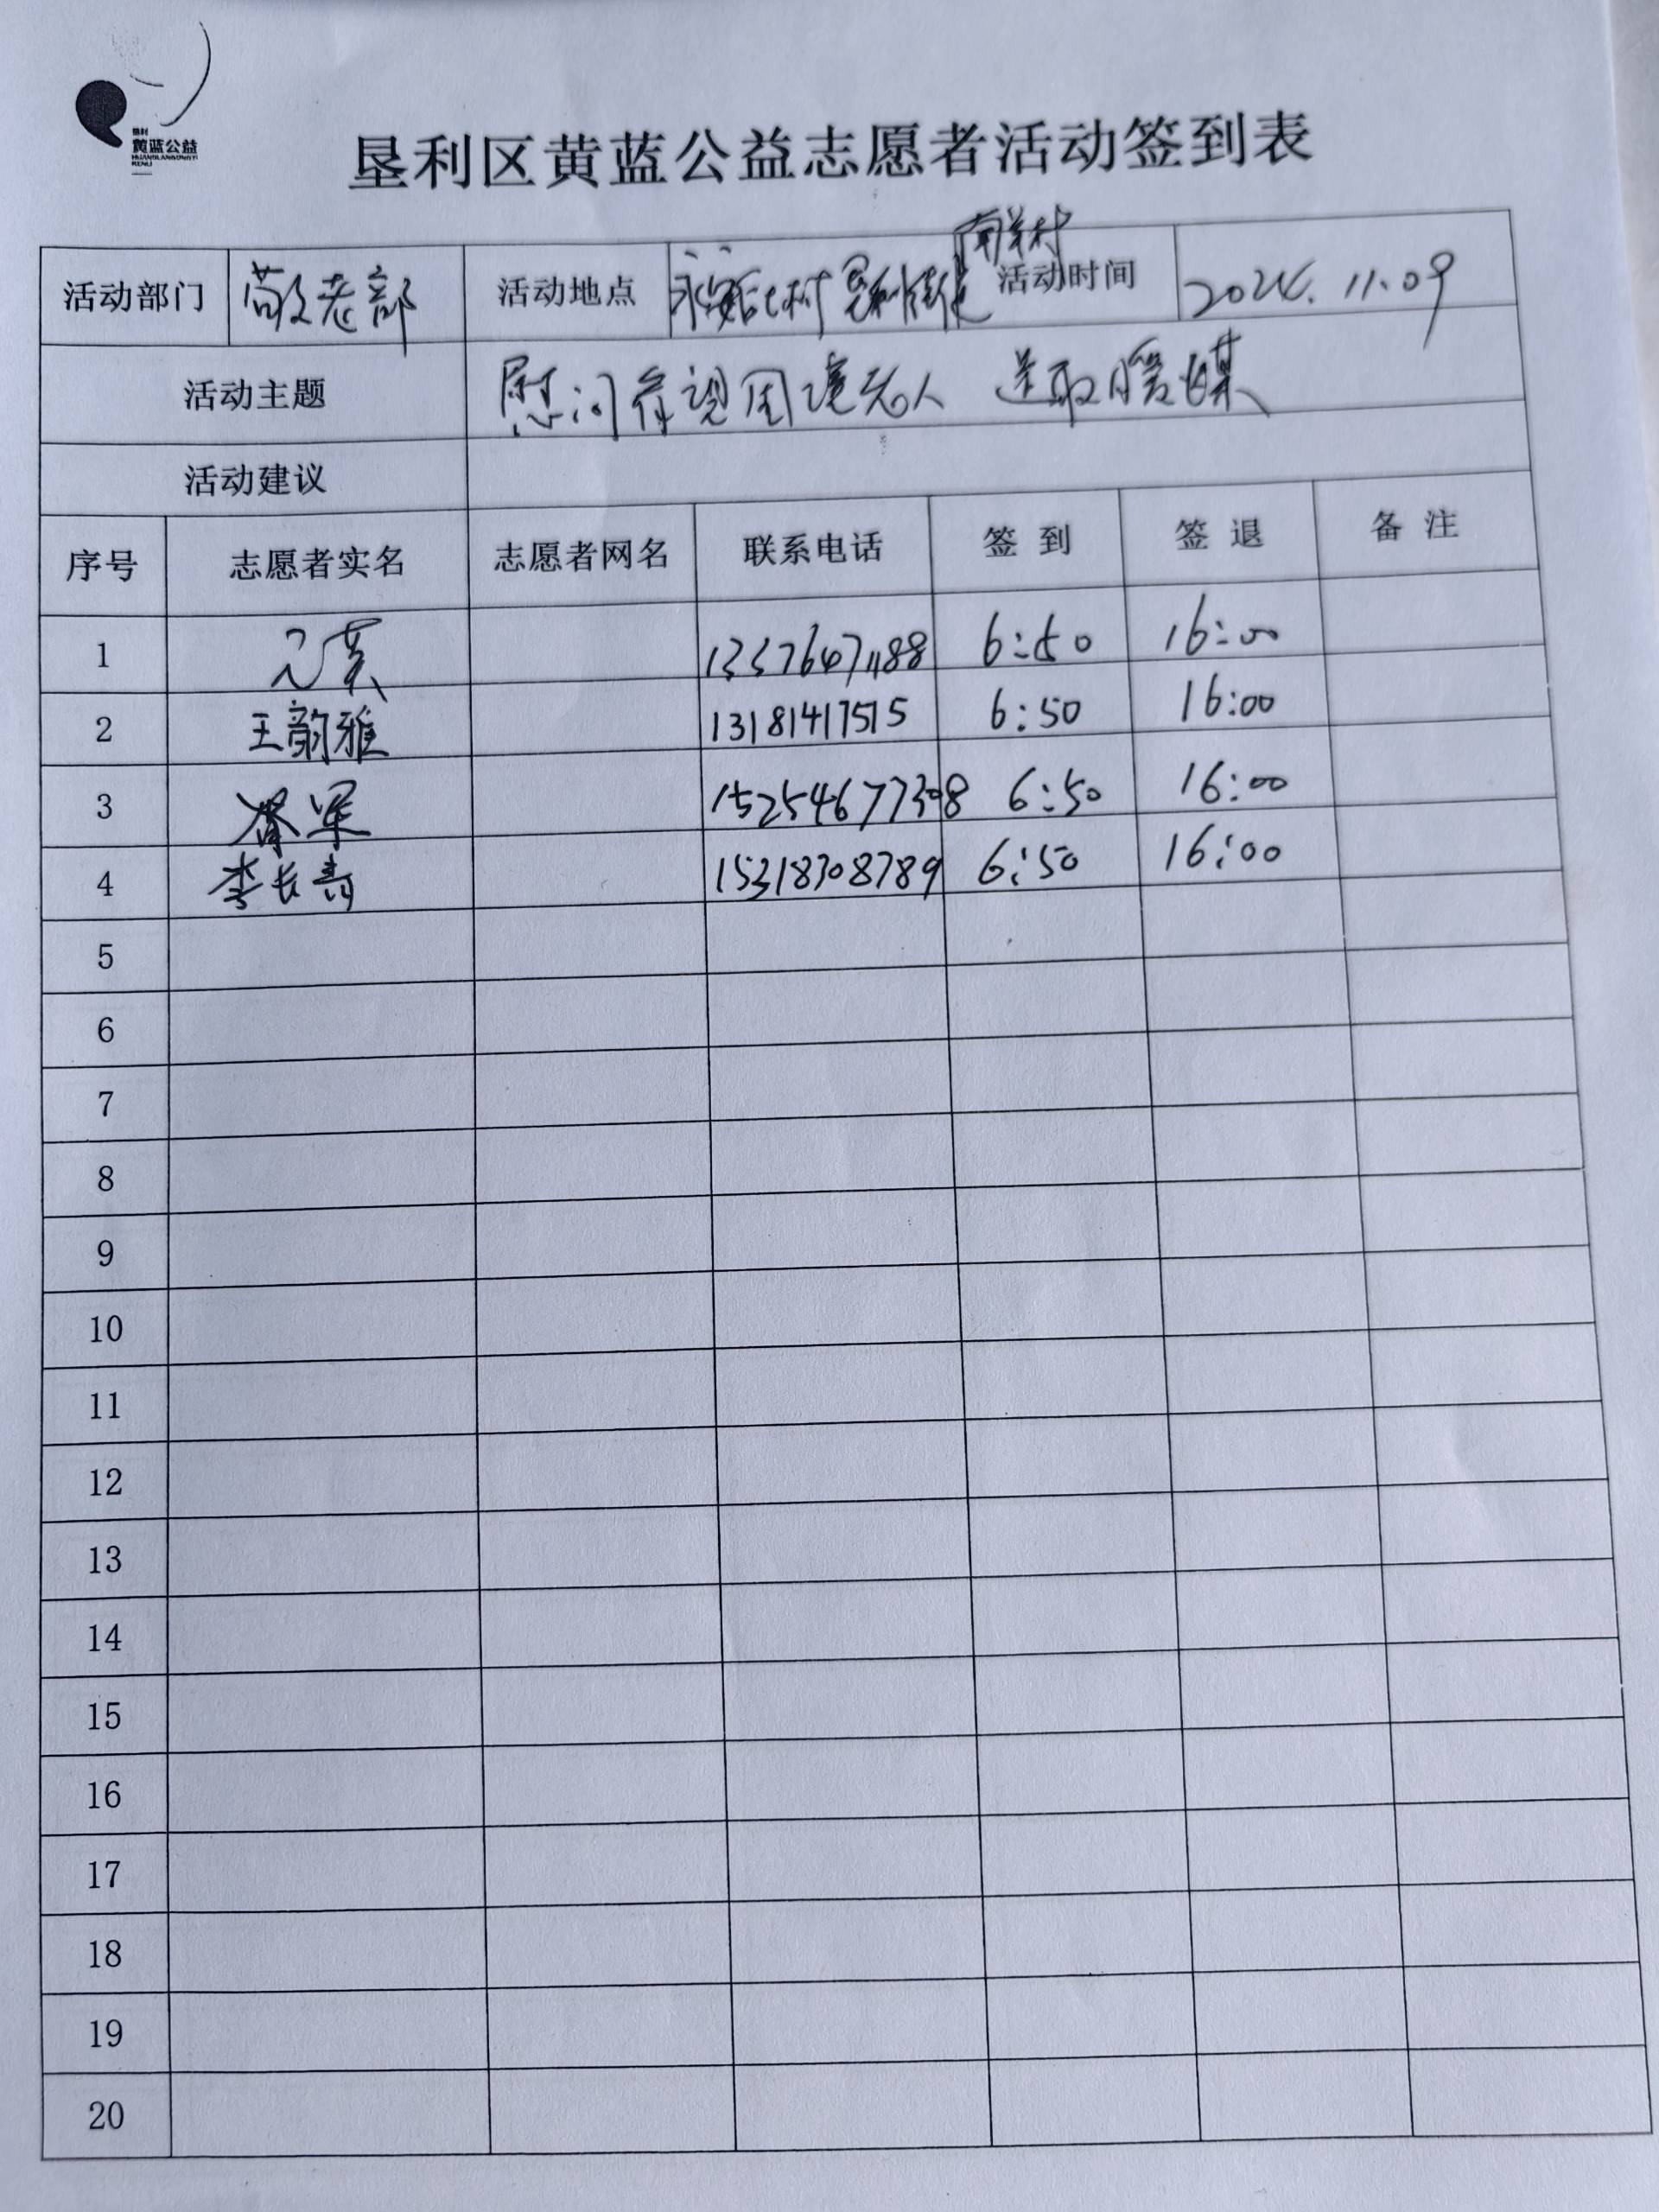 垦利
黄蓝公益
HUANGLANGONGYI
KENLI
垦利区黄蓝公益志愿者活动签到表
南羊村
活动部门 敬老部 活动地点 永安 村 垦利街道 活动时间 2024.11.09
活动主题 慰问看望困境老人 送取暖煤
活动建议
序号 志愿者实名 志愿者网名 联系电话 签到 签退 备注
1 6:50 16:00
2 王韵雅 13181417515 6:50 16:00
3 军 15254677308 6:50 16:00
4 李长青 15318308789 6:50 16:00
5
6
7
8
9
10
11
12
13
14
15
16
17
18
19
20